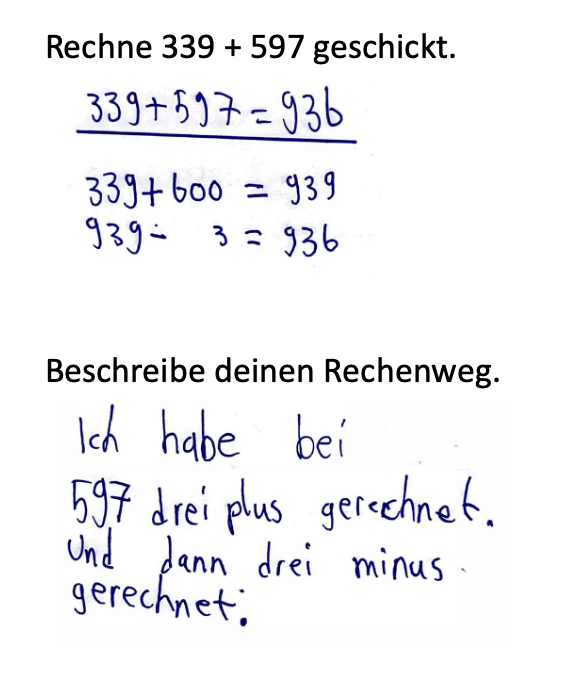 Rechne 339 + 597 geschickt.
339+597=936
339+600 = 939
939- 3 = 936
Beschreibe deinen Rechenweg.
Ich habe bei
597 drei plus gerechnet.
Und dann drei minus
gerechnet.